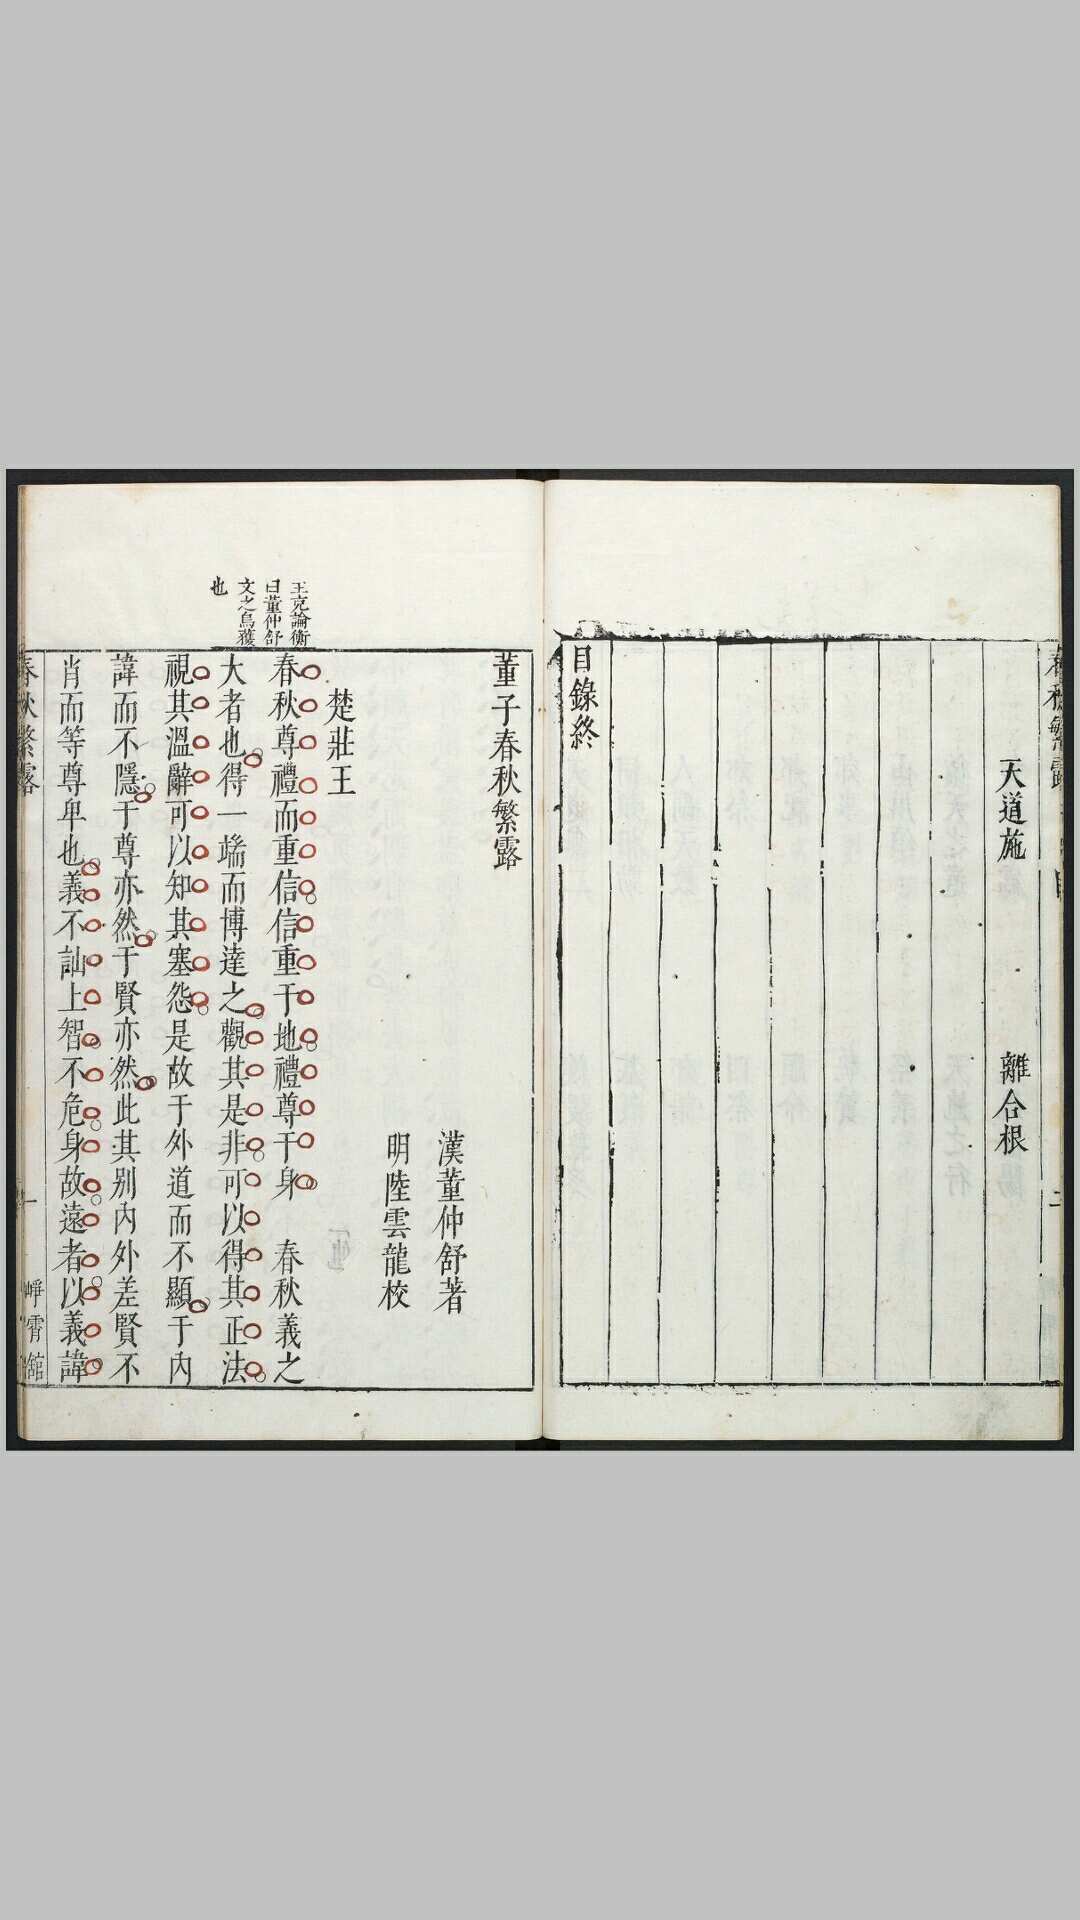 天道施　離合根
目錄終
董子春秋繁露
漢董仲舒著
明陸雲龍校
楚莊王
王充論衡
曰董仲舒
文之烏獲
也
春秋尊禮而重信信重于地禮尊于身　春秋義之
大者也得一端而博達之觀其是非可以得其正法
視其溫辭可以知其塞怨是故于外道而不顯于內
諱而不隱于尊亦然于賢亦然此其別內外差賢不
肖而等尊卑也義不訕上智不危身故遠者以義諱
春秋繁露　一　崢霄館